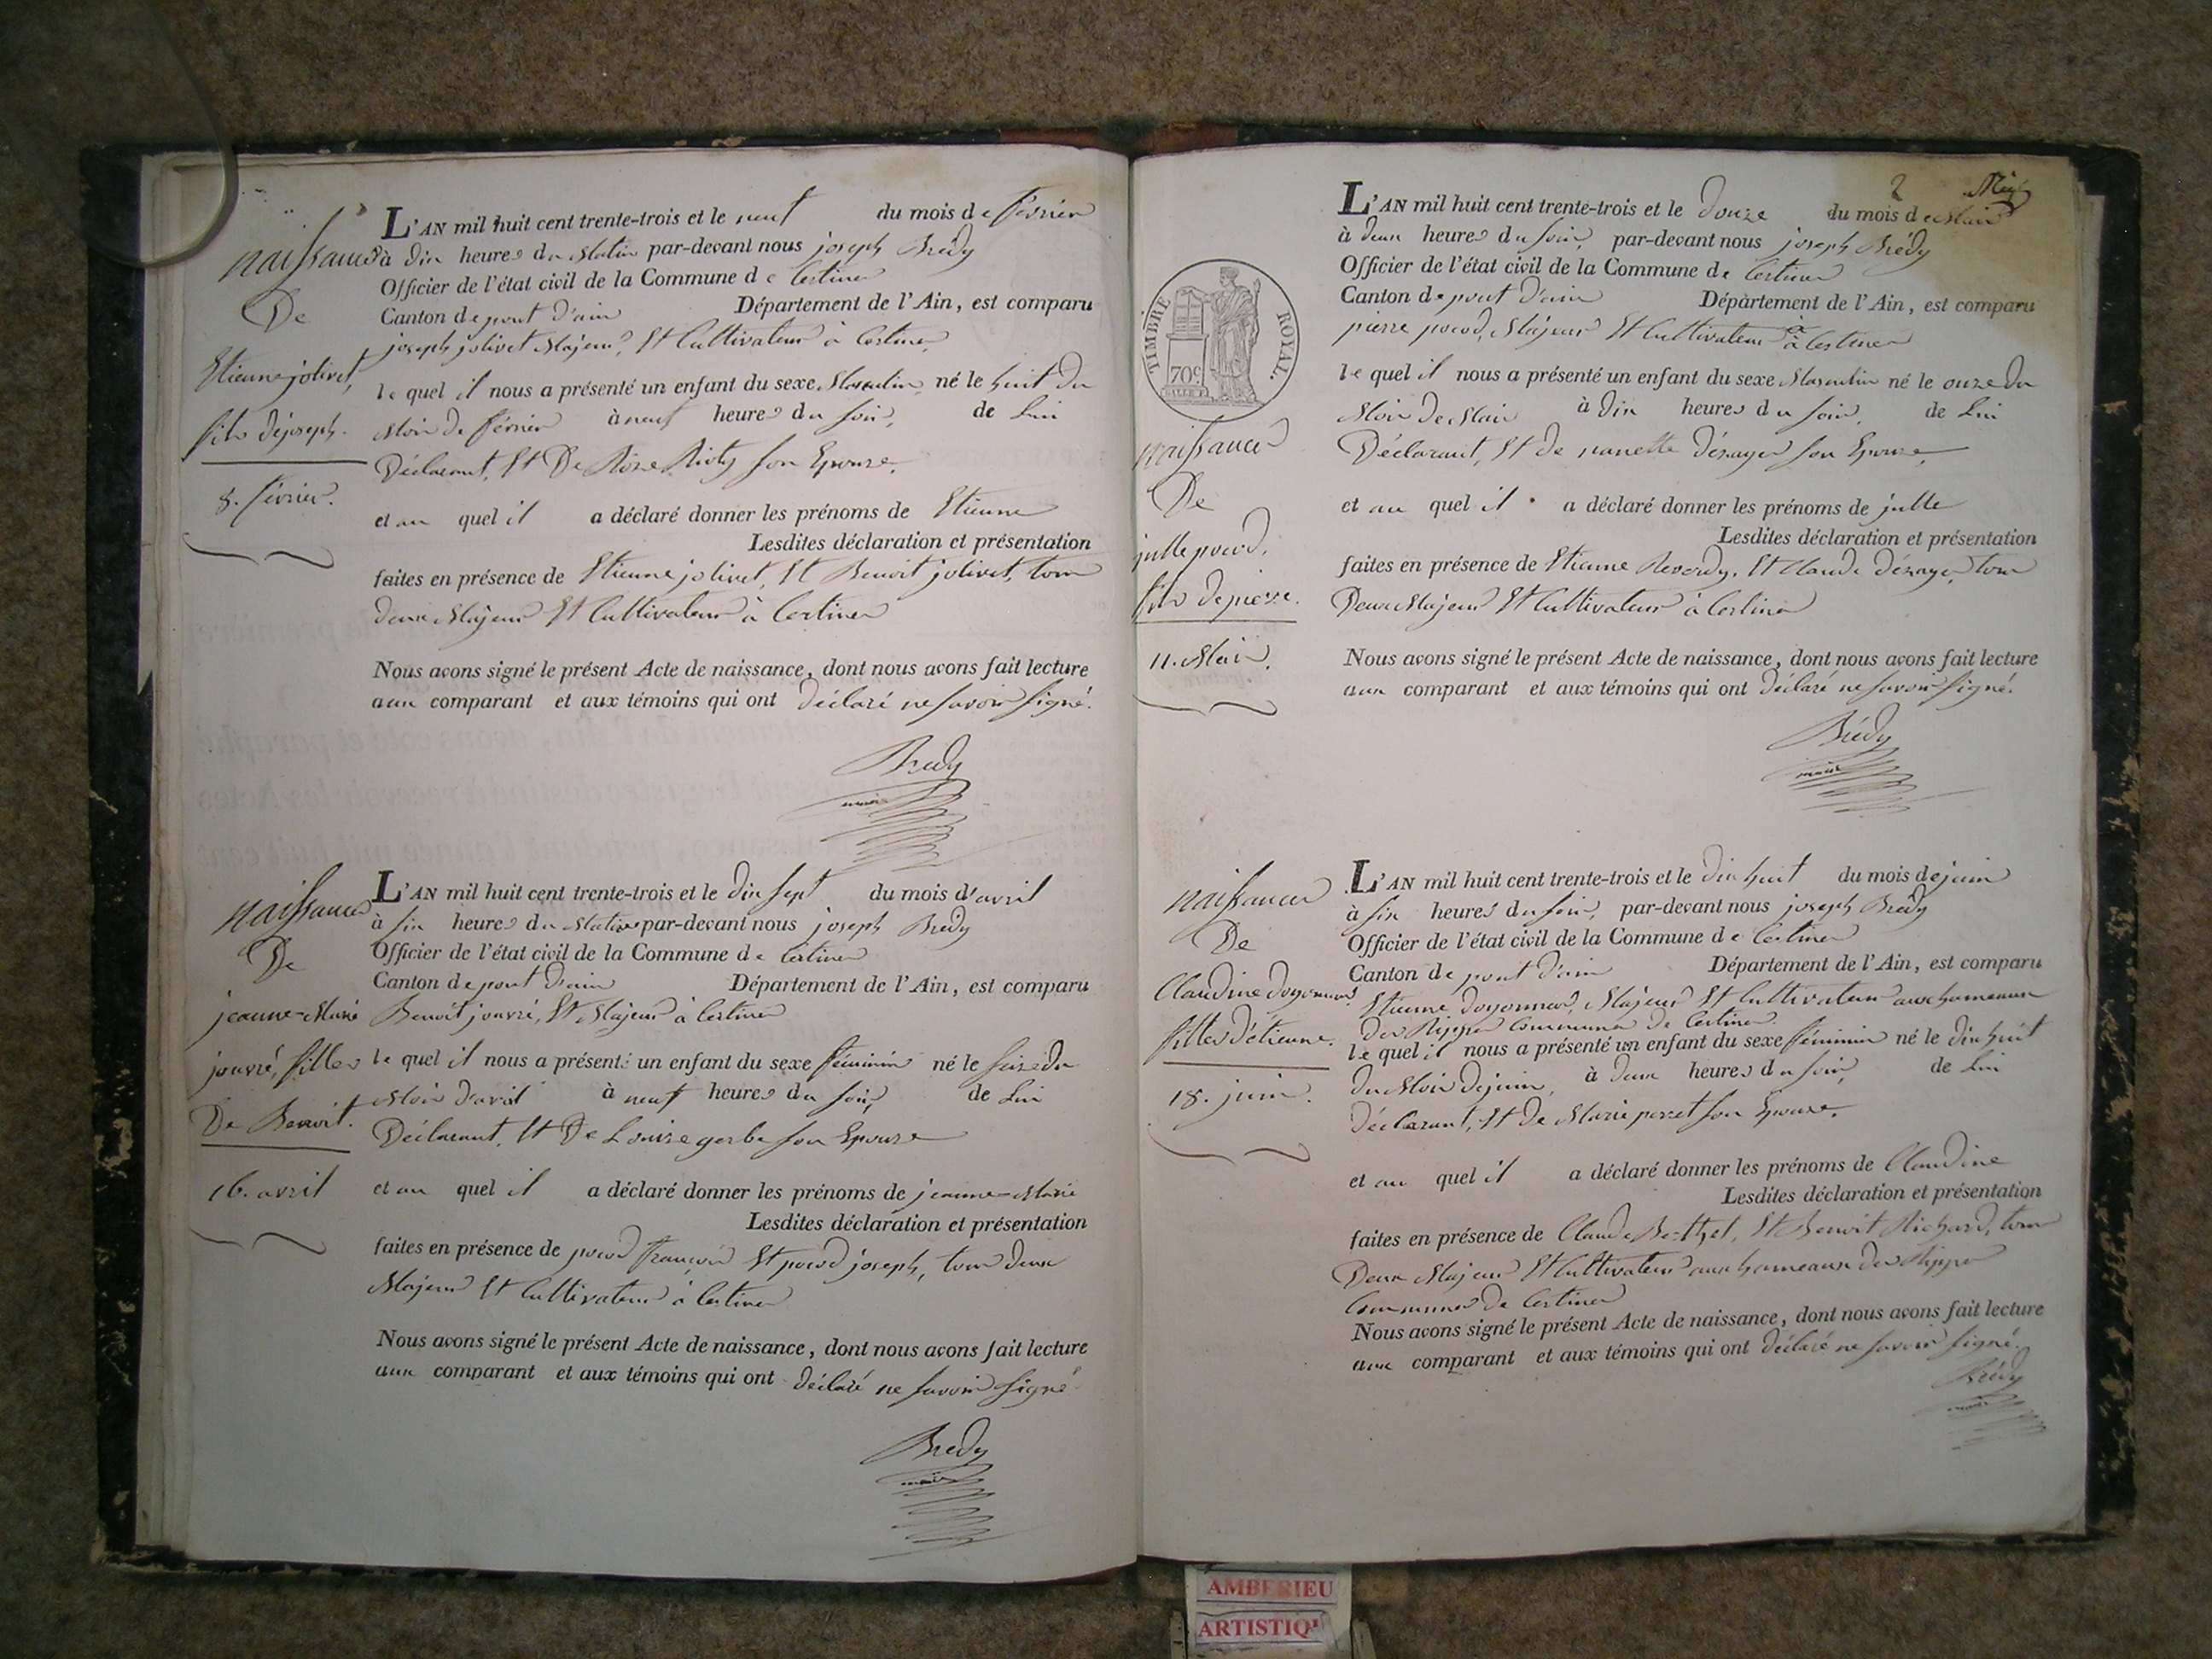 naissance
De
Etienne jolivet,
fils de joseph.
8. février.
L'AN mil huit cent trente-trois et le neuf du mois de février
à dix heures du Matin par-devant nous joseph Brédy
Officier de l'état civil de la Commune de Certines
Canton de pont d'ain Département de l'Ain, est comparu
joseph jolivet Majeur, Et Cultivateur à Certines
le quel il nous a présenté un enfant du sexe Masculin né le huit du
Mois de février à neuf heures du soir, de Lui
Déclarant, Et De Rose son Epouse,
et au quel il a déclaré donner les prénoms de Etienne
Lesdites déclaration et présentation
faites en présence de Etienne jolivet, Et Benoit jolivet, tous
deux Majeurs Et Cultivateurs à Certines
Nous avons signé le présent Acte de naissance, dont nous avons fait lecture
aux comparant et aux témoins qui ont déclaré ne savoir signé.
Bredy
maire
naissance
De
jeanne-Marie
jouvré, fille
De Benoit.
16. avril
L'AN mil huit cent trente-trois et le dix sept du mois d'avril
à six heures du Matin par-devant nous joseph Brédy
Officier de l'état civil de la Commune de Certines
Canton de pont d'ain Département de l'Ain, est comparu
Benoit jouvré, Et Majeur à Certines
le quel il nous a présenté un enfant du sexe féminin né le seize du
Mois d'avril à neuf heures du soir, de Lui
Déclarant, Et De Louise gerbe son Epouse
et au quel il a déclaré donner les prénoms de jeanne-Marie
Lesdites déclaration et présentation
faites en présence de pocod françois Et pocod joseph, tous deux
Majeurs Et Cultivateurs à Certines
Nous avons signé le présent Acte de naissance, dont nous avons fait lecture
aux comparant et aux témoins qui ont déclaré ne savoir signé
Bredy
maire
2
TIMBRE ROYAL.
70c
naissance
De
julle pocod,
fils de pierre.
11. Mars.
L'AN mil huit cent trente-trois et le douze du mois de Mars
à deux heures du soir, par-devant nous joseph Brédy
Officier de l'état civil de la Commune de Certines
Canton de pont d'ain Département de l'Ain, est comparu
pierre pocod, Majeur Et Cultivateur à Certines
le quel il nous a présenté un enfant du sexe Masculin né le onze du
Mois de Mars à dix heures du soir, de Lui
Déclarant, Et de nanette désrayes son Epouse,
et au quel il a déclaré donner les prénoms de julle
Lesdites déclaration et présentation
faites en présence de Etienne Reverdy, Et Claude désrayes, tous
Deux Majeurs Et Cultivateurs à Certines
Nous avons signé le présent Acte de naissance, dont nous avons fait lecture
aux comparant et aux témoins qui ont déclaré ne savoir signé.
Brédy
maire
naissance
De
Claudine doyonnas,
fille d'étienne.
18. juin.
L'AN mil huit cent trente-trois et le dix huit du mois de juin
à six heures du soir, par-devant nous joseph Brédy
Officier de l'état civil de la Commune de Certines
Canton de pont d'ain Département de l'Ain, est comparu
Etienne doyonnas, Majeur Et Cultivateur aux hameaux
des Rippes Commune de Certines
le quel il nous a présenté un enfant du sexe féminin né le dix huit
du Mois de juin, à deux heures du soir, de Lui
déclarant, Et de Marie perret son Epouse,
et au quel il a déclaré donner les prénoms de Claudine
Lesdites déclaration et présentation
faites en présence de Claude Berthet, Et Benoit Richard, tous
Deux Majeurs Et Cultivateurs aux hameaux des Rippes
Commune de Certines
Nous avons signé le présent Acte de naissance, dont nous avons fait lecture
aux comparant et aux témoins qui ont déclaré ne savoir signé.
Brédy
maire
AMBERIEU
ARTISTIQ